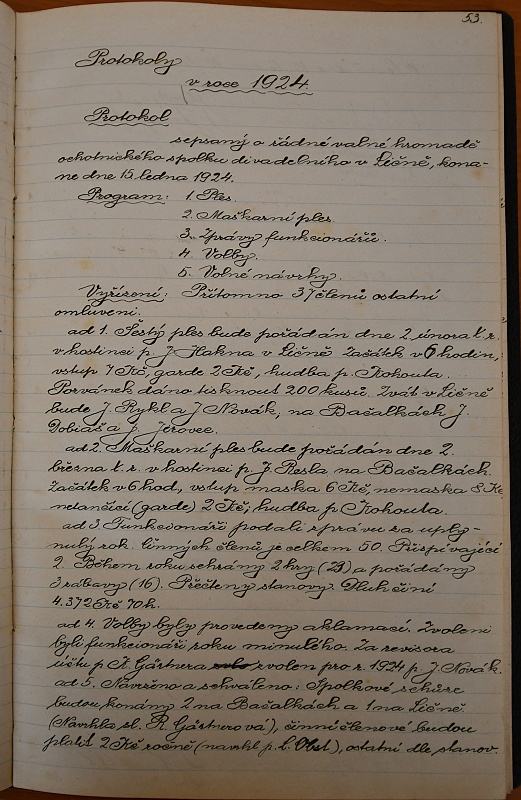 53.
Protokoly
v roce 1924.
Protokol
sepsaný o řádné valné hromadě
ochotnického spolku divadelního v Ličně, kona-
ne dne 15. ledna 1924.
Program: 1. Ples.
2. Maškarní ples.
3. Zprávy funkcionářů.
4. Volby.
5. Volné návrhy.
Vyřízení: Přítomno 37 členů ostatní
omluveni.
ad 1. Šestý ples bude pořádán dne 2. února t. r.
v hostinci p. J. Hakna v Ličně. Začátek v 6 hodin,
vstup 7 Kč, garde 2 Kč, hudba p. Kohouta.
Pozvánek dáno tisknout 200 kusů. Zvát v Ličně
bude J. Rykl a J. Novák, na Bačalkách J.
Dobiáš a p. Jerovec.
ad 2. Maškarní ples bude pořádán dne 2.
března t. r. v hostinci p. J. Resla na Bačalkách.
Začátek v 6 hod., vstup maska 6 Kč, nemaska 8 Kč
netančící (garde) 2 Kč; hudba p. Kohouta.
ad 3. Funkcionáři podali zprávu za uply-
nulý rok. Činných členů je celkem 50. Přispívající
2. Během roku sehrány 2 hry (23) a pořádány
3 zábavy (16). Přečteny stanovy. Dluh činí
4.372 Kč 70 h.
ad 4. Volby byly provedeny aklamací. Zvoleni
byli funkcionáři roku minulého. Za revisora
účtu p. A. Gärtnera zvolen pro r. 1924 p. J. Novák.
ad 5. Navrženo a schváleno: Spolkové schůze
budou konány 2 na Bačalkách a 1 na Ličně.
(Navrhla sl. R. Gärtnerová), činní členové budou
platit 2 Kč ročně (navrhl p. Č. Obst), ostatní dle stanov.